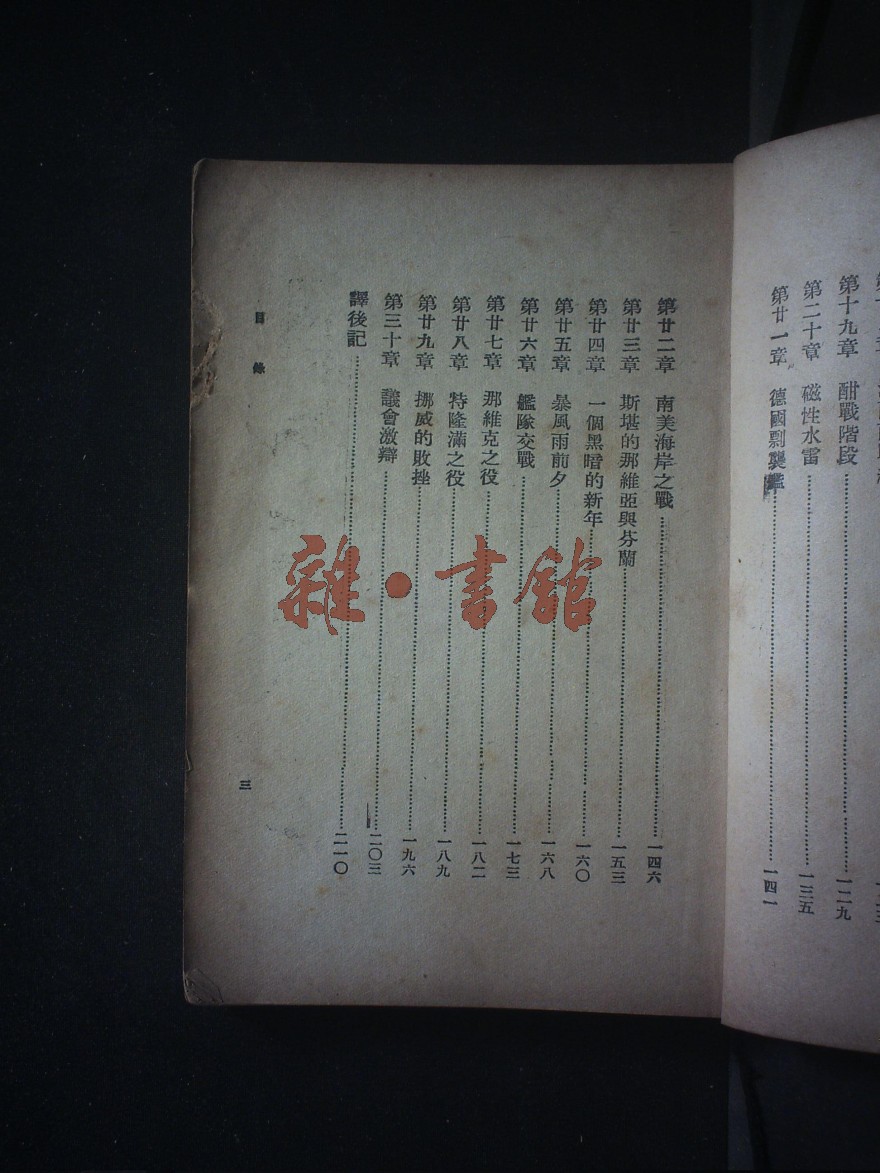 第十九章　酣戰階段……一二九
第二十章　磁性水雷……一三五
第廿一章　德國剽襲艦……一四一
第廿二章　南美海岸之戰……一四六
第廿三章　斯堪的那維亞與芬蘭……一五三
第廿四章　一個黑暗的新年……一六〇
第廿五章　暴風雨前夕……一六八
第廿六章　艦隊交戰……一七三
第廿七章　那維克之役……一八二
第廿八章　特隆滿之役……一八九
第廿九章　挪威的敗挫……一九六
第三十章　議會激辯……二〇三
譯後記……二一〇
目錄
三
雜·書館